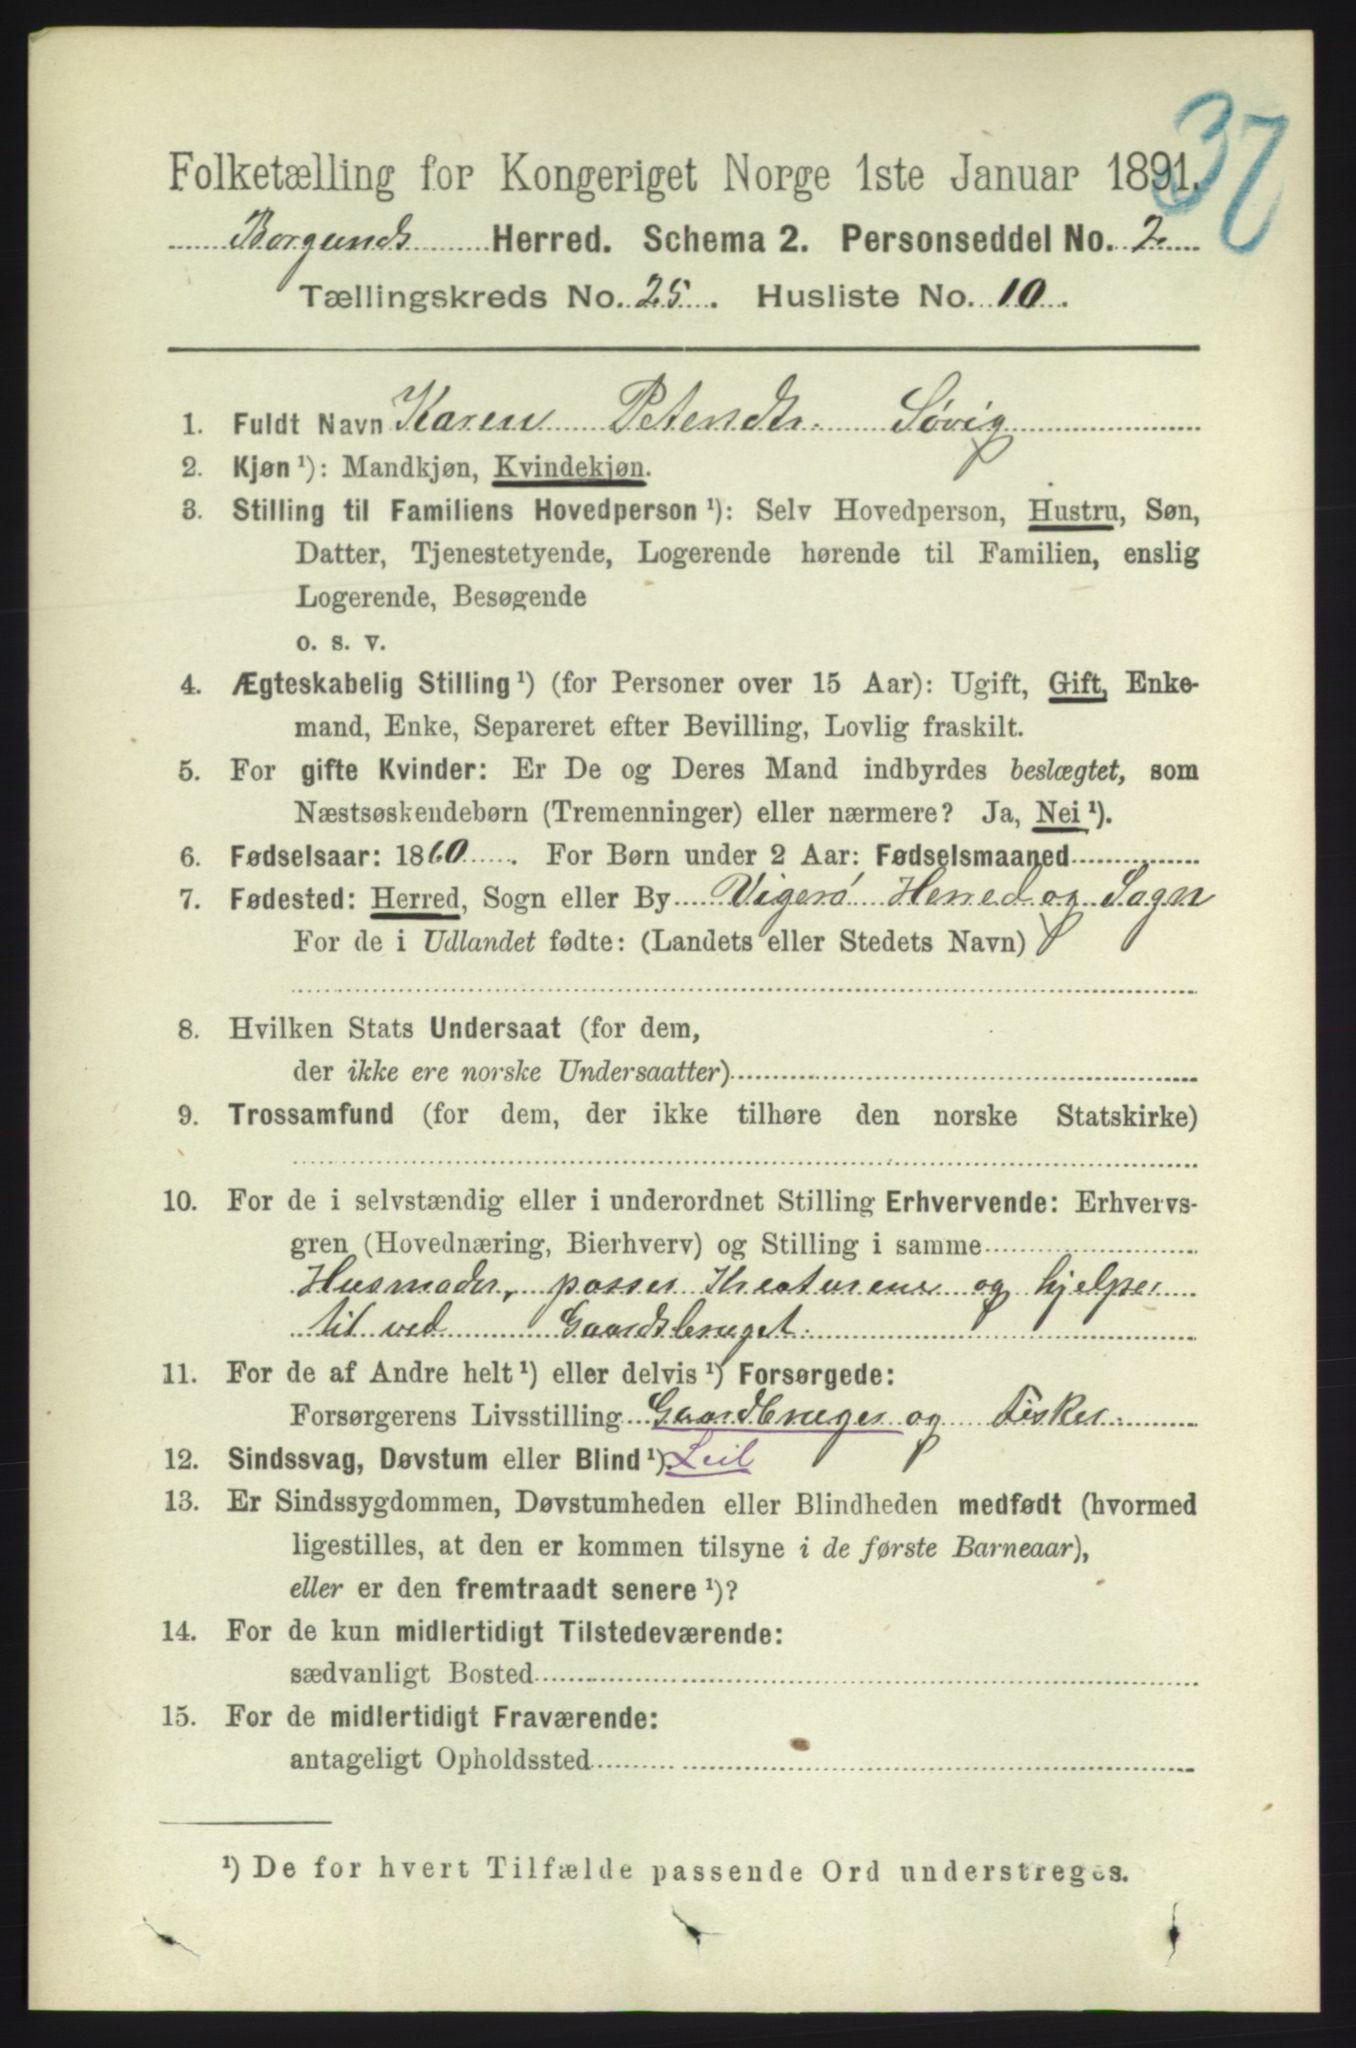 37
Folketælling for Kongeriget Norge 1ste Januar 1891.
Borgunds Herred. Schema 2. Personseddel No. 2
Tællingskreds No. 25. Husliste No. 10.
1. Fuldt Navn Karen Petersdtr. Søvig
2. Kjøn ¹): Mandkjøn, Kvindekjøn.
3. Stilling til Familiens Hovedperson ¹): Selv Hovedperson, Hustru, Søn,
Datter, Tjenestetyende, Logerende hørende til Familien, enslig
Logerende, Besøgende
o. s. v.
4. Ægteskabelig Stilling ¹) (for Personer over 15 Aar): Ugift, Gift, Enke-
mand, Enke, Separeret efter Bevilling, Lovlig fraskilt.
5. For gifte Kvinder: Er De og Deres Mand indbyrdes beslægtet, som
Næstsøskendebørn (Tremenninger) eller nærmere? Ja, Nei ¹).
6. Fødselsaar: 1860. For Børn under 2 Aar: Fødselsmaaned
7. Fødested: Herred, Sogn eller By Vigerø Herred og Sogn
For de i Udlandet fødte: (Landets eller Stedets Navn)
8. Hvilken Stats Undersaat (for dem,
der ikke ere norske Undersaatter)
9. Trossamfund (for dem, der ikke tilhøre den norske Statskirke)
10. For de i selvstændig eller i underordnet Stilling Erhvervende: Erhvervs-
gren (Hovednæring, Bierhverv) og Stilling i samme
Husmoder, passer Kreaturene og hjelper
til ved Gaardsbruget.
11. For de af Andre helt ¹) eller delvis ¹) Forsørgede:
Forsørgerens Livsstilling Gaardbruger og Fisker.
12. Sindssvag, Døvstum eller Blind ¹). Leil
13. Er Sindssygdommen, Døvstumheden eller Blindheden medfødt (hvormed
ligestilles, at den er kommen tilsyne i de første Barneaar),
eller er den fremtraadt senere ¹)?
14. For de kun midlertidigt Tilstedeværende:
sædvanligt Bosted
15. For de midlertidigt Fraværende:
antageligt Opholdssted
¹) De for hvert Tilfælde passende Ord understreges.